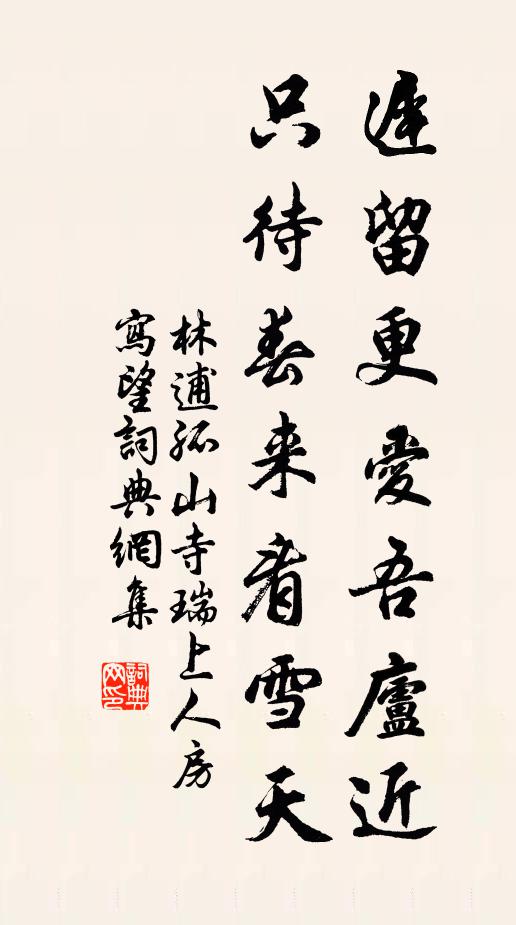 遲留更愛吾廬近
只待春来看雪天
林逋孤山寺瑞上人房
寫望詞典網集
詞典网印